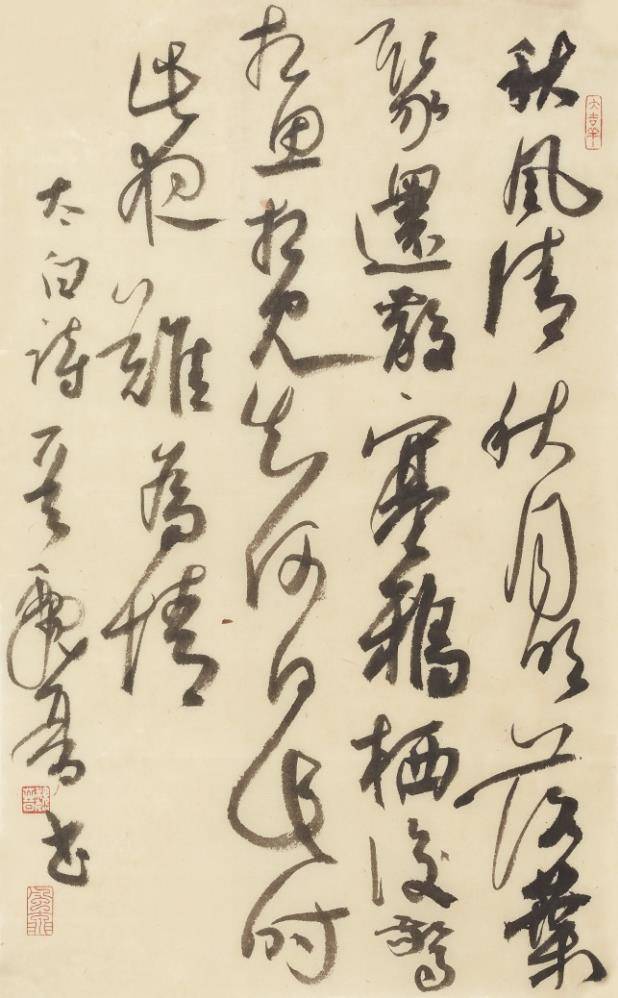 大吉羊
秋風清秋月明落葉
聚還散寒鴉栖復驚
相思相見知何日此時
此夜難為情
太白詩 書